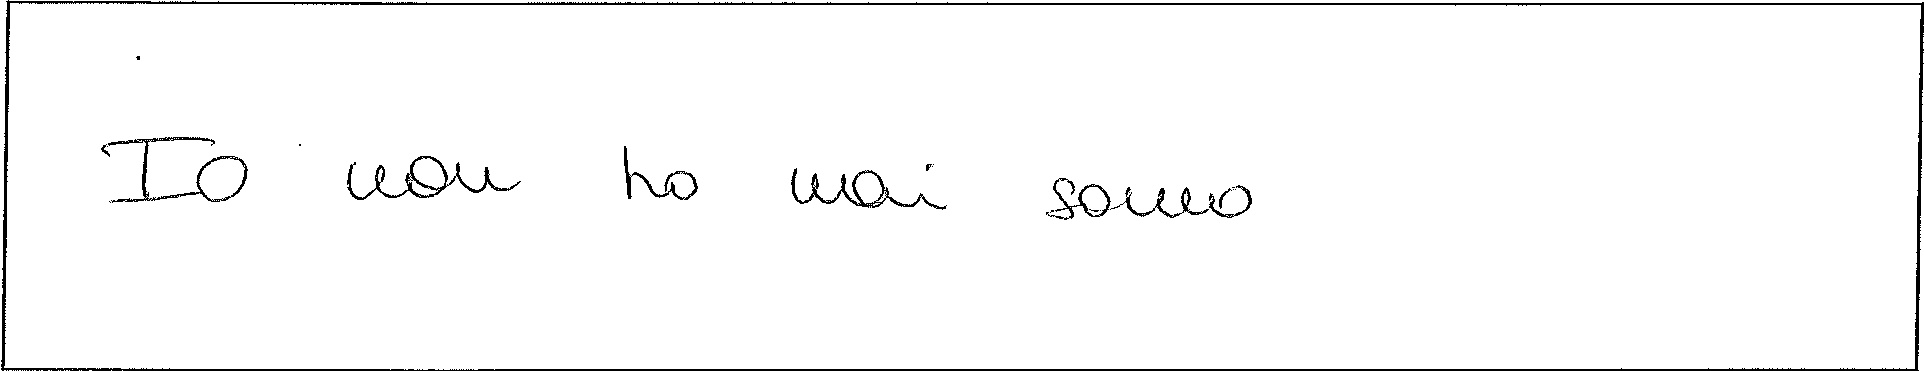 Io non ho mai sonno